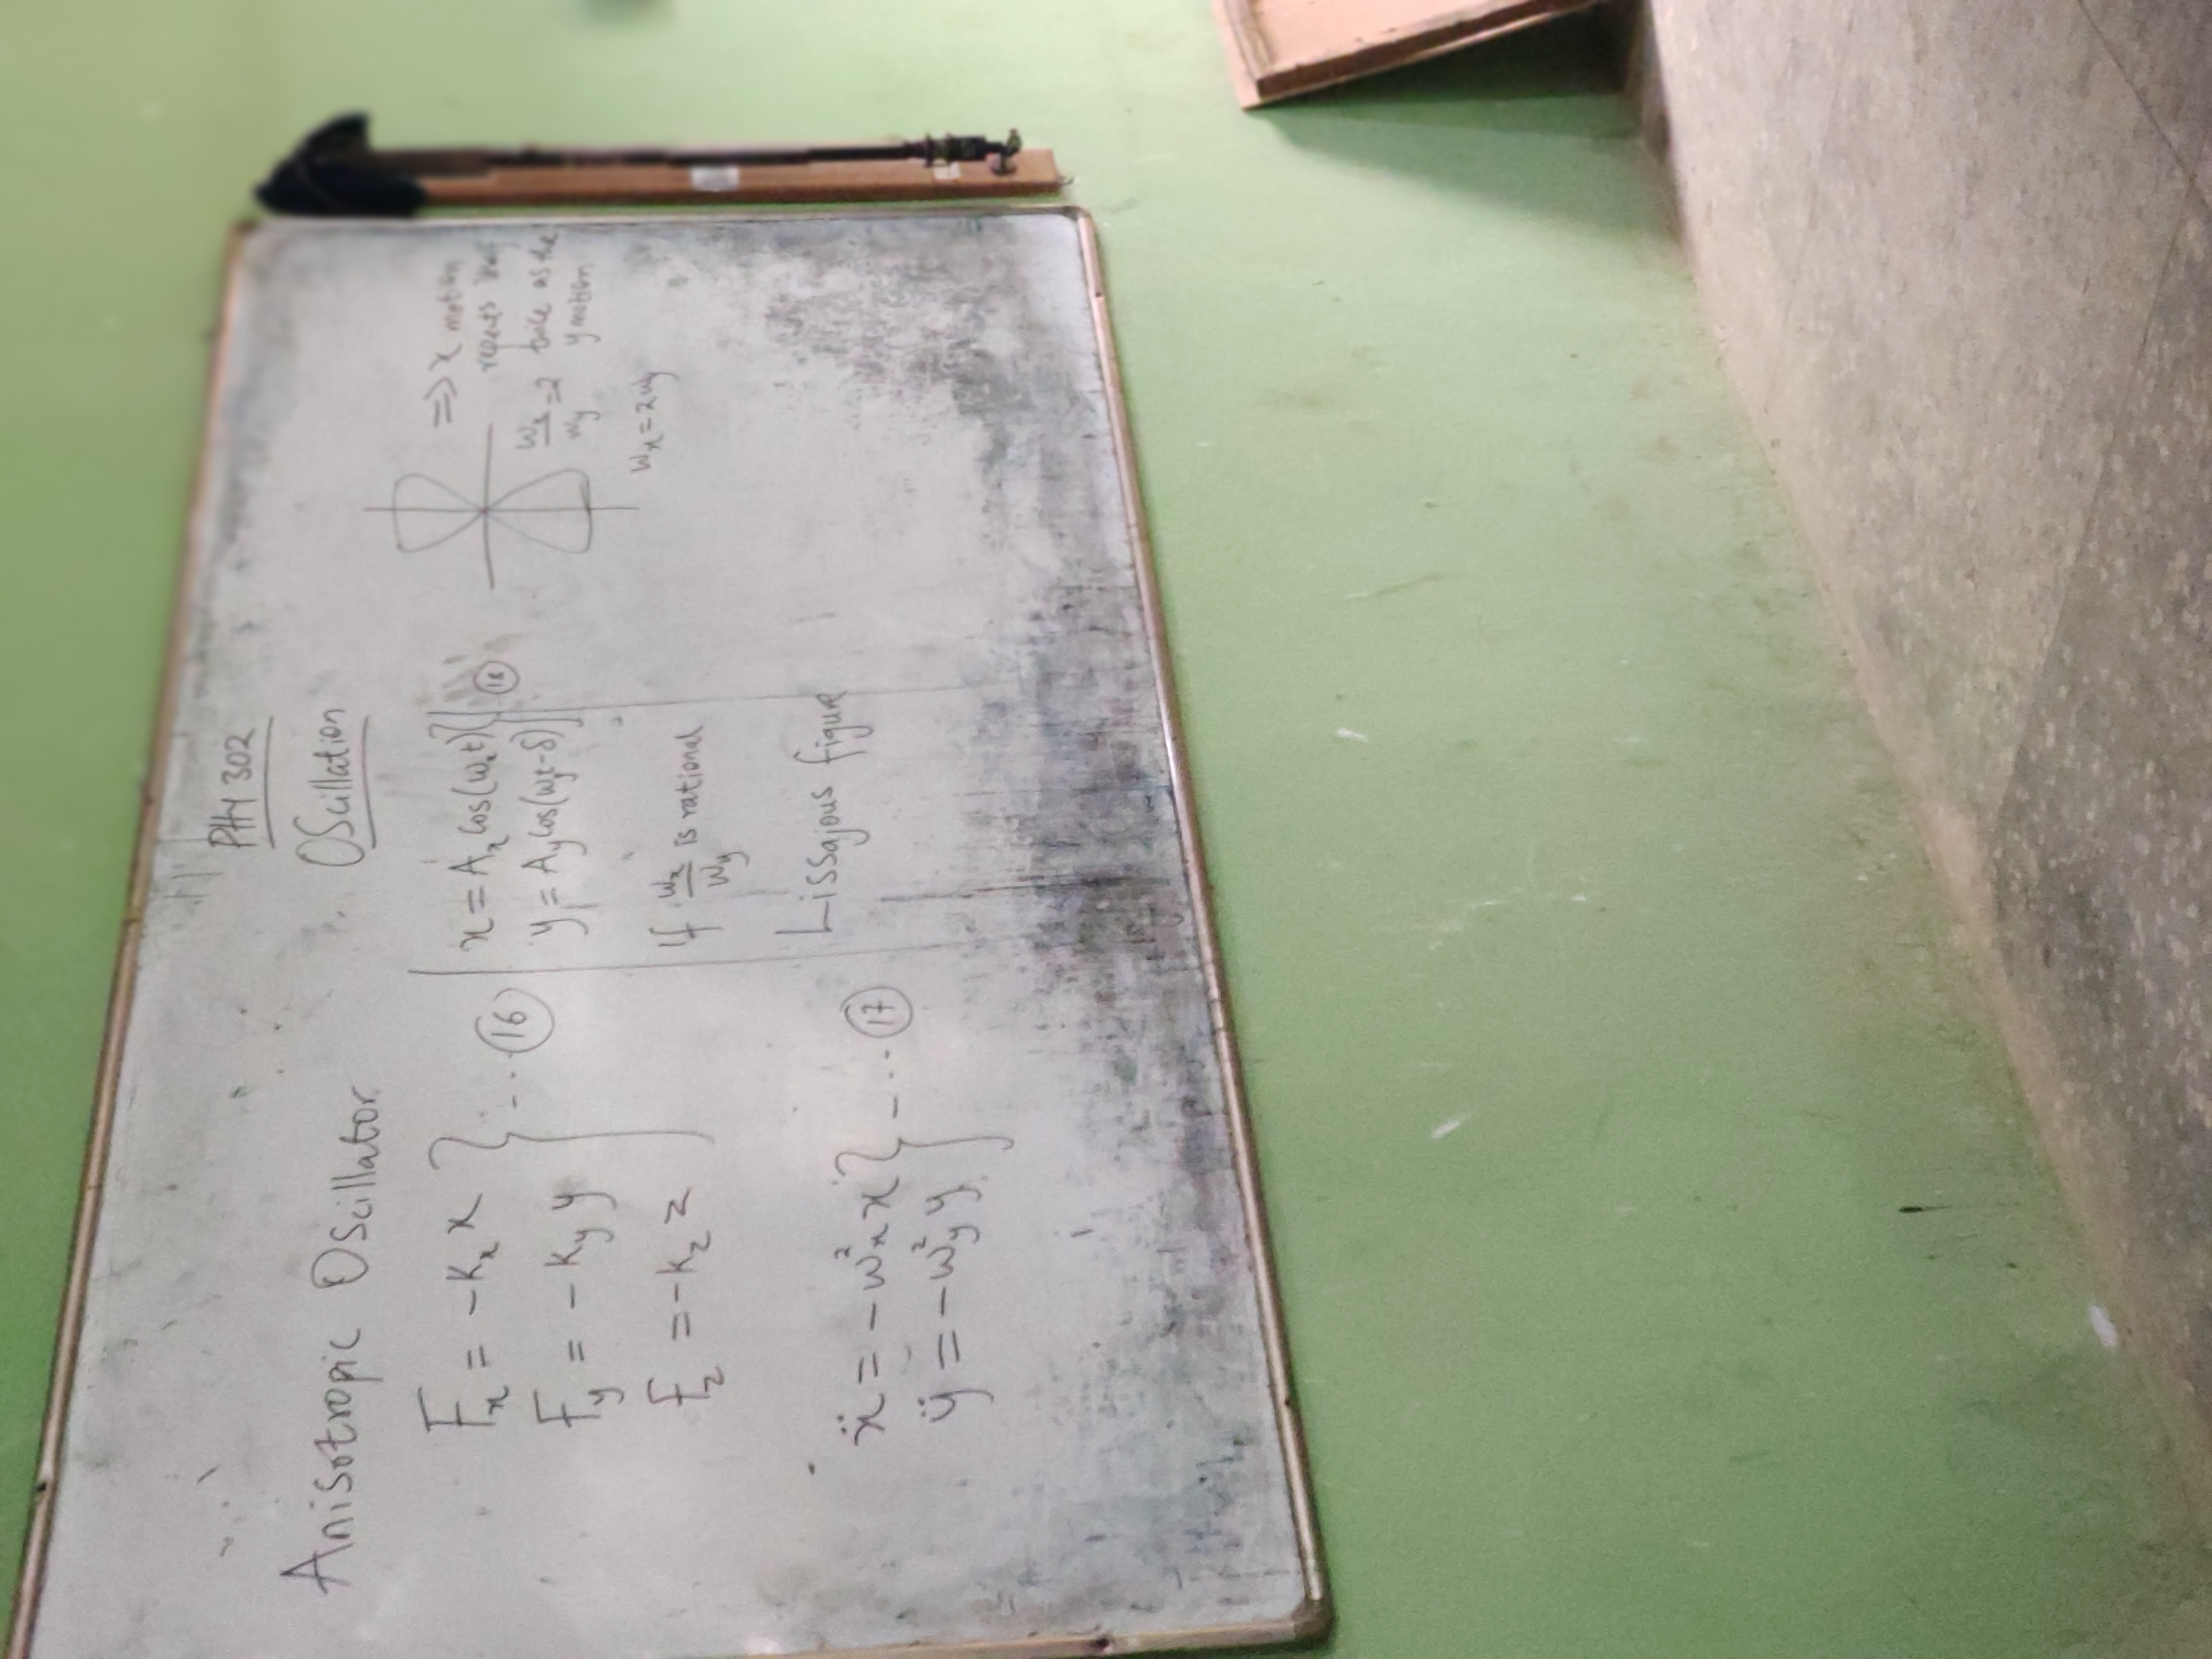 PHY 302
Oscillation
Anisotropic Oscillator
Fₓ = -Kₓ x
F_y = -K_y y } ... (16)
F_z = -K_z z
ẍ = -ω²ₓ x
ÿ = -ω²_y y } ... (17)
x = Aₓ Cos(ωₓt)
y = A_y Cos(ω_yt-δ) } (18)
If ωₓ/ω_y is rational
Lissajous figure
=> x motion
repeats
ωₓ/ω_y = 2 twice as the
y motion
ωₓ = 2ω_y